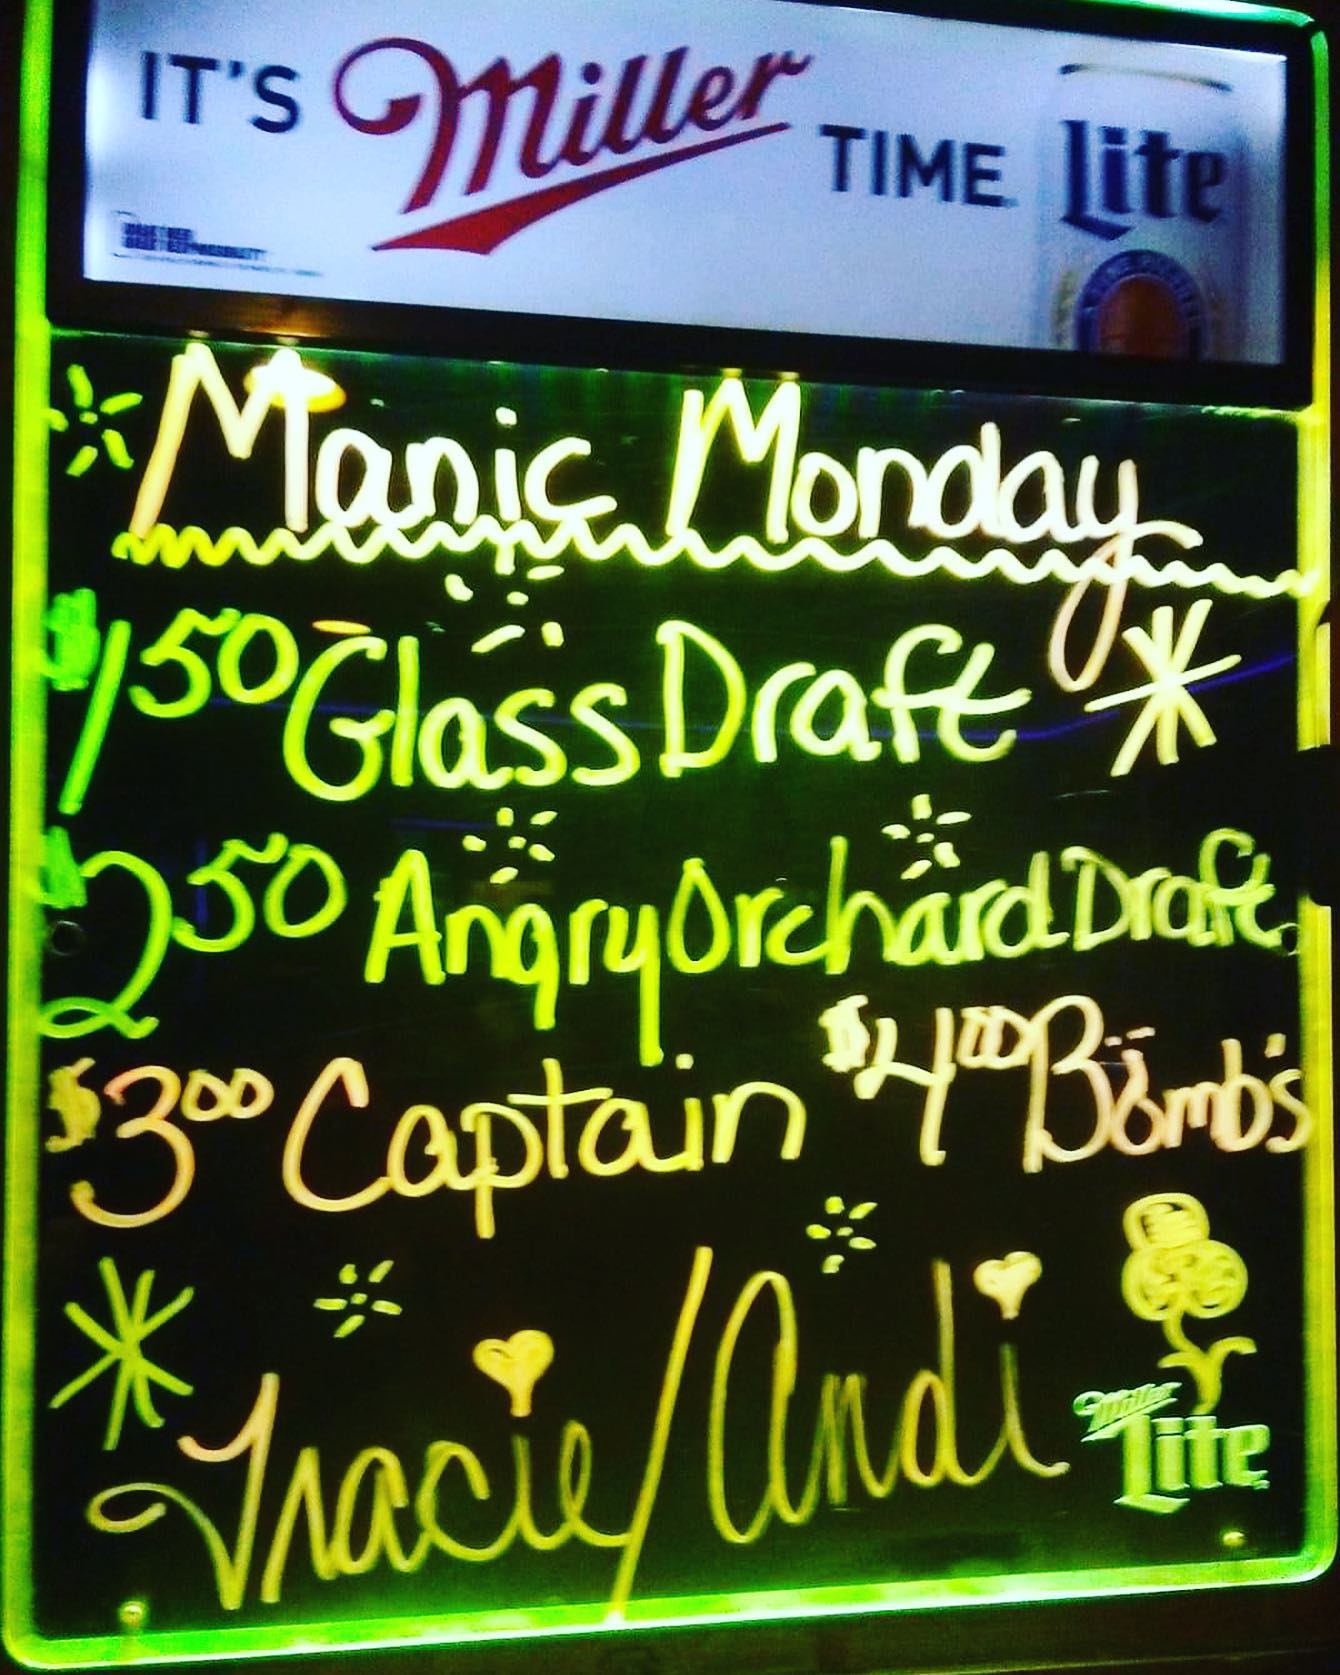 IT'S Miller TIME. Lite
Manic Monday
$1.50 Glass Draft
$2.50 Angry Orchard Draft
$3.00 Captain $4.00 Bomb's
Tracie/Andi
Miller
Lite